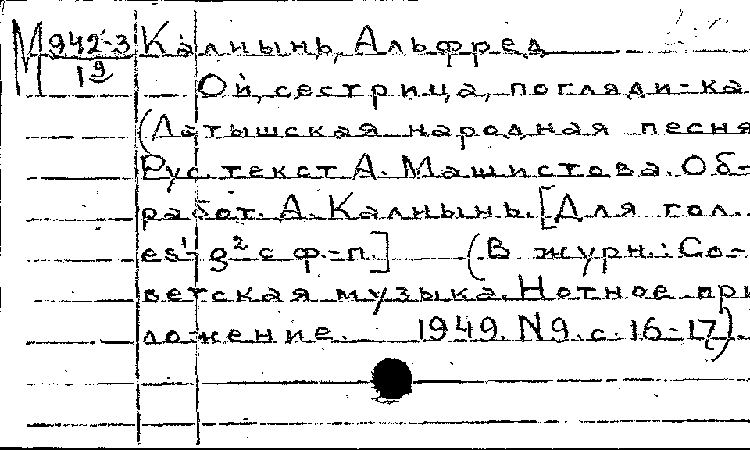 М 942-3 Калнынь, Альфред
19 Ой, сестрица, погляди-ка
(Латышская народная песня
Рус. текст А. Машистова. Об-
работ. А. Калнынь. [Для гол.
es¹-g² с ф.-п.] (В журн.: Со-
ветская музыка. Нотное при
ложение. 1949. N9. с. 16-17)